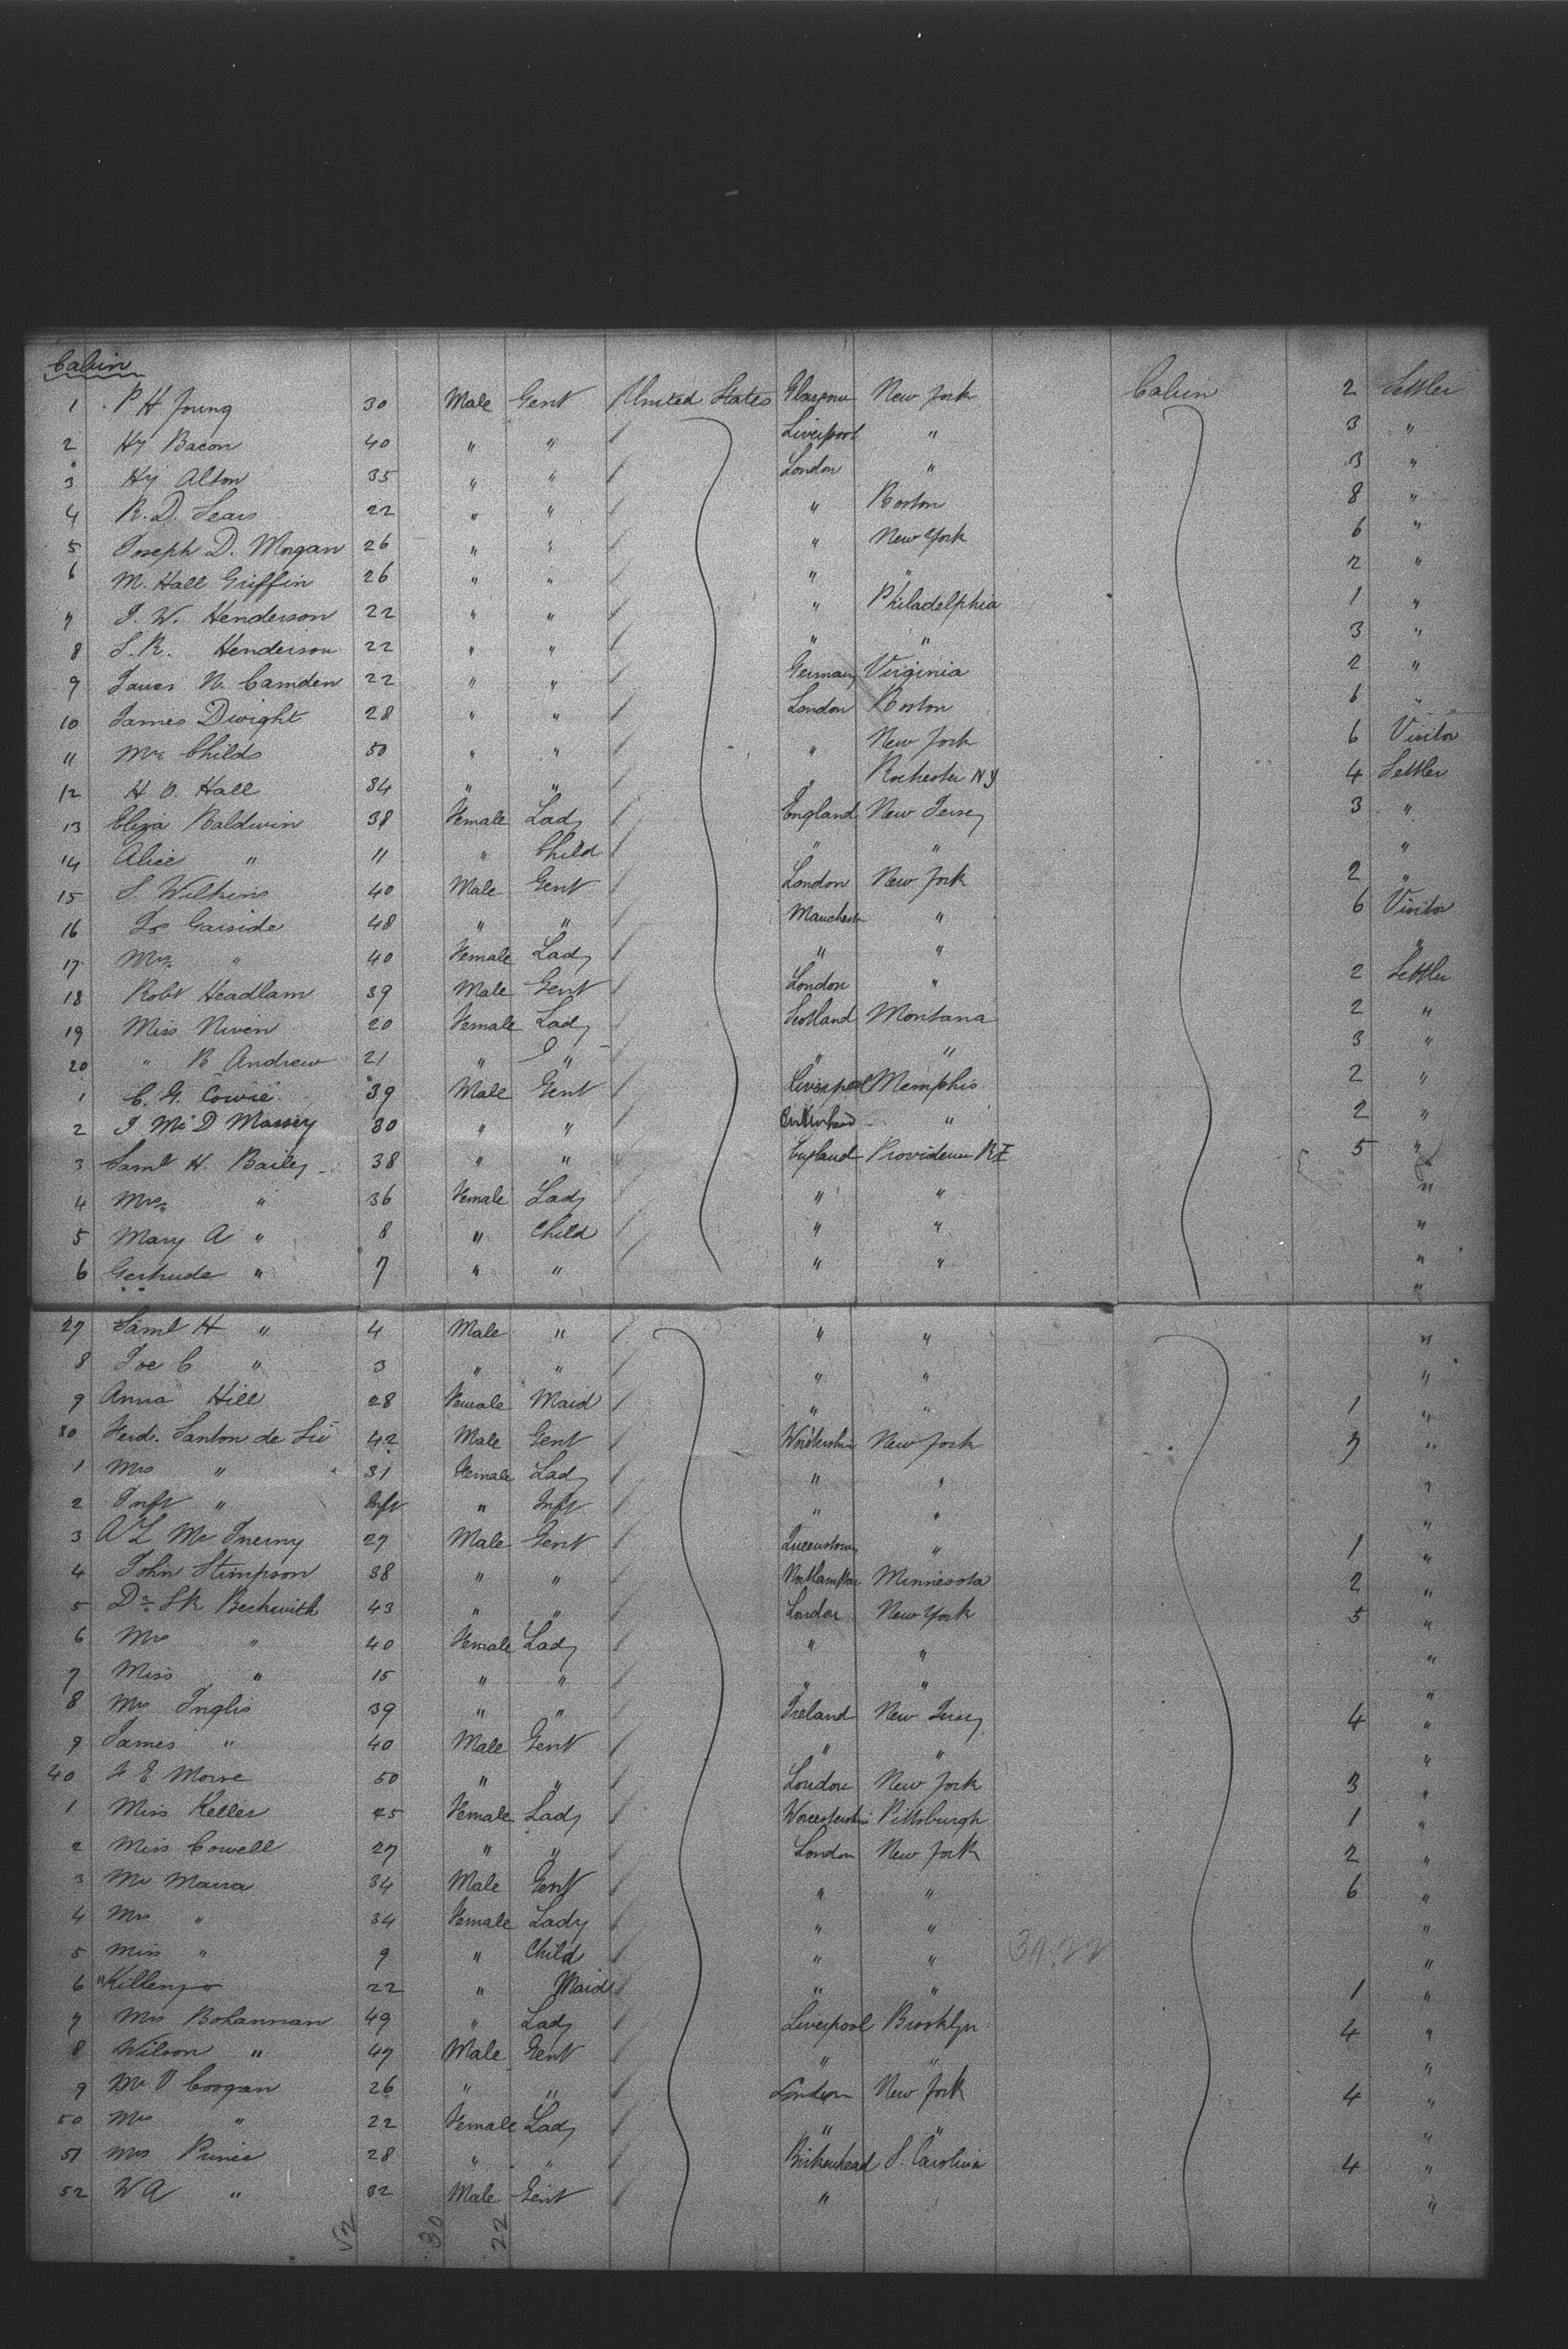 Cabin
1 P H Young 30 Male Gent United States Glasgow New York Cabin 2 Settler
2 Hy Bacon 40 " " Liverpool " 3 "
3 Hy Alton 35 " " London " 3 "
4 R. D. Sears 22 " " " Boston 8 "
5 Joseph D. Morgan 26 " " " New York 6 "
6 M. Hall Griffin 26 " " " " 2 "
7 J. W. Henderson 22 " " " Philadelphia 1 "
8 S. R. Henderson 22 " " " " 3 "
9 N. Camden 22 " " Germany Virginia 2 "
10 James Dwight 28 " " London Boston 6 "
11 Mr. Childs 50 " " " New York 6 Visitor
12 H O. Hall 34 " " " Rochester NY 4 Settler
13 Eliza Baldwin 38 Female Lady England New Jersey 3 "
14 Alice " 11 " Child " " "
15 S. Wilkins 40 Male Gent London New York 2 "
16 Jos Garside 48 " " Manchester " 6 Visitor
17 Mrs. " 40 Female Lady " " "
18 Robt Headlam 39 Male Gent London " 2 Settler
19 Miss Niven 20 Female Lady Scotland Montana 2 "
20 " B Andrew 21 " " " " 3 "
1 C. G. Cowie 39 Male Gent Liverpool Memphis 2 "
2 J. Mc D Massey 30 " " Birkenhead " 2 "
3 Saml H. Bailey 38 " " England Providence RI 5 "
4 Mrs. " 36 Female Lady " " "
5 Mary A " 8 " Child " " "
6 Gertrude " 7 " " " " "
27 Saml H " 4 Male " " " "
8 Joe C " 3 " " " " "
9 Anna Hill 28 Female Maid " " 1 "
30 Ferd. Santon de 42 Male Gent New York 7 "
1 Mrs " 31 Female Lady " " "
2 Inft " Inft " Inft " " "
3 A L Mc Inerny 27 Male Gent Queenstown " 1 "
4 John Stimpson 38 " " Northampton Minnesota 2 "
5 Dr. S R Beckwith 43 " " London New York 5 "
6 Mrs " 40 Female Lady " " "
7 Miss " 15 " " " " "
8 Mrs Inglis 39 " " Ireland New Jersey 4 "
9 James " 40 Male Gent " " "
40 F E Morse 50 " " London New York 3 "
1 Miss Keller 45 Female Lady Worcestershire Pittsburgh 1 "
2 Miss Cowell 27 " " London New York 2 "
3 Mr Marra 34 Male Gent " " 6 "
4 Mrs " 34 Female Lady " " "
5 Miss " 9 " Child " " "
6 " 22 " Maid " " 1 "
7 Mrs Bohannan 49 " Lady Liverpool Brooklyn 4 "
8 Wilson " 47 Male Gent " " "
9 Mr Coogan 26 " " London New York 4 "
50 Mrs " 22 Female Lady " " "
51 Mrs Prince 28 " " Birkenhead S. Carolina 4 "
52 W A " 32 Male Gent " "
52 30 22